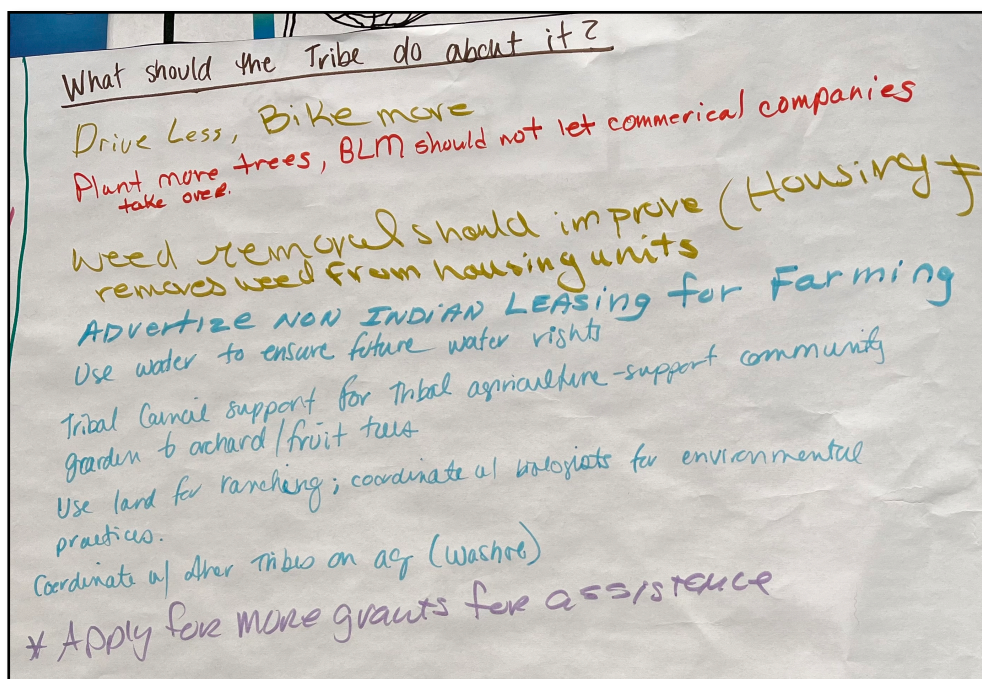 What should the Tribe do about it?
Drive Less, Bike more
Plant more trees, BLM should not let commerical companies
take over.
weed removal should improve (Housing
removes weed from housing units
ADVERTIZE NON INDIAN LEASING for Farming
Use water to ensure future water rights
Tribal Council support for Tribal agriculture-support community
garden to orchard/fruit trees
Use land for ranching; coordinate w/ biologists for environmental
practices.
Coordinate w/ other Tribes on ag (Washoe)
* Apply for more grants for assistence